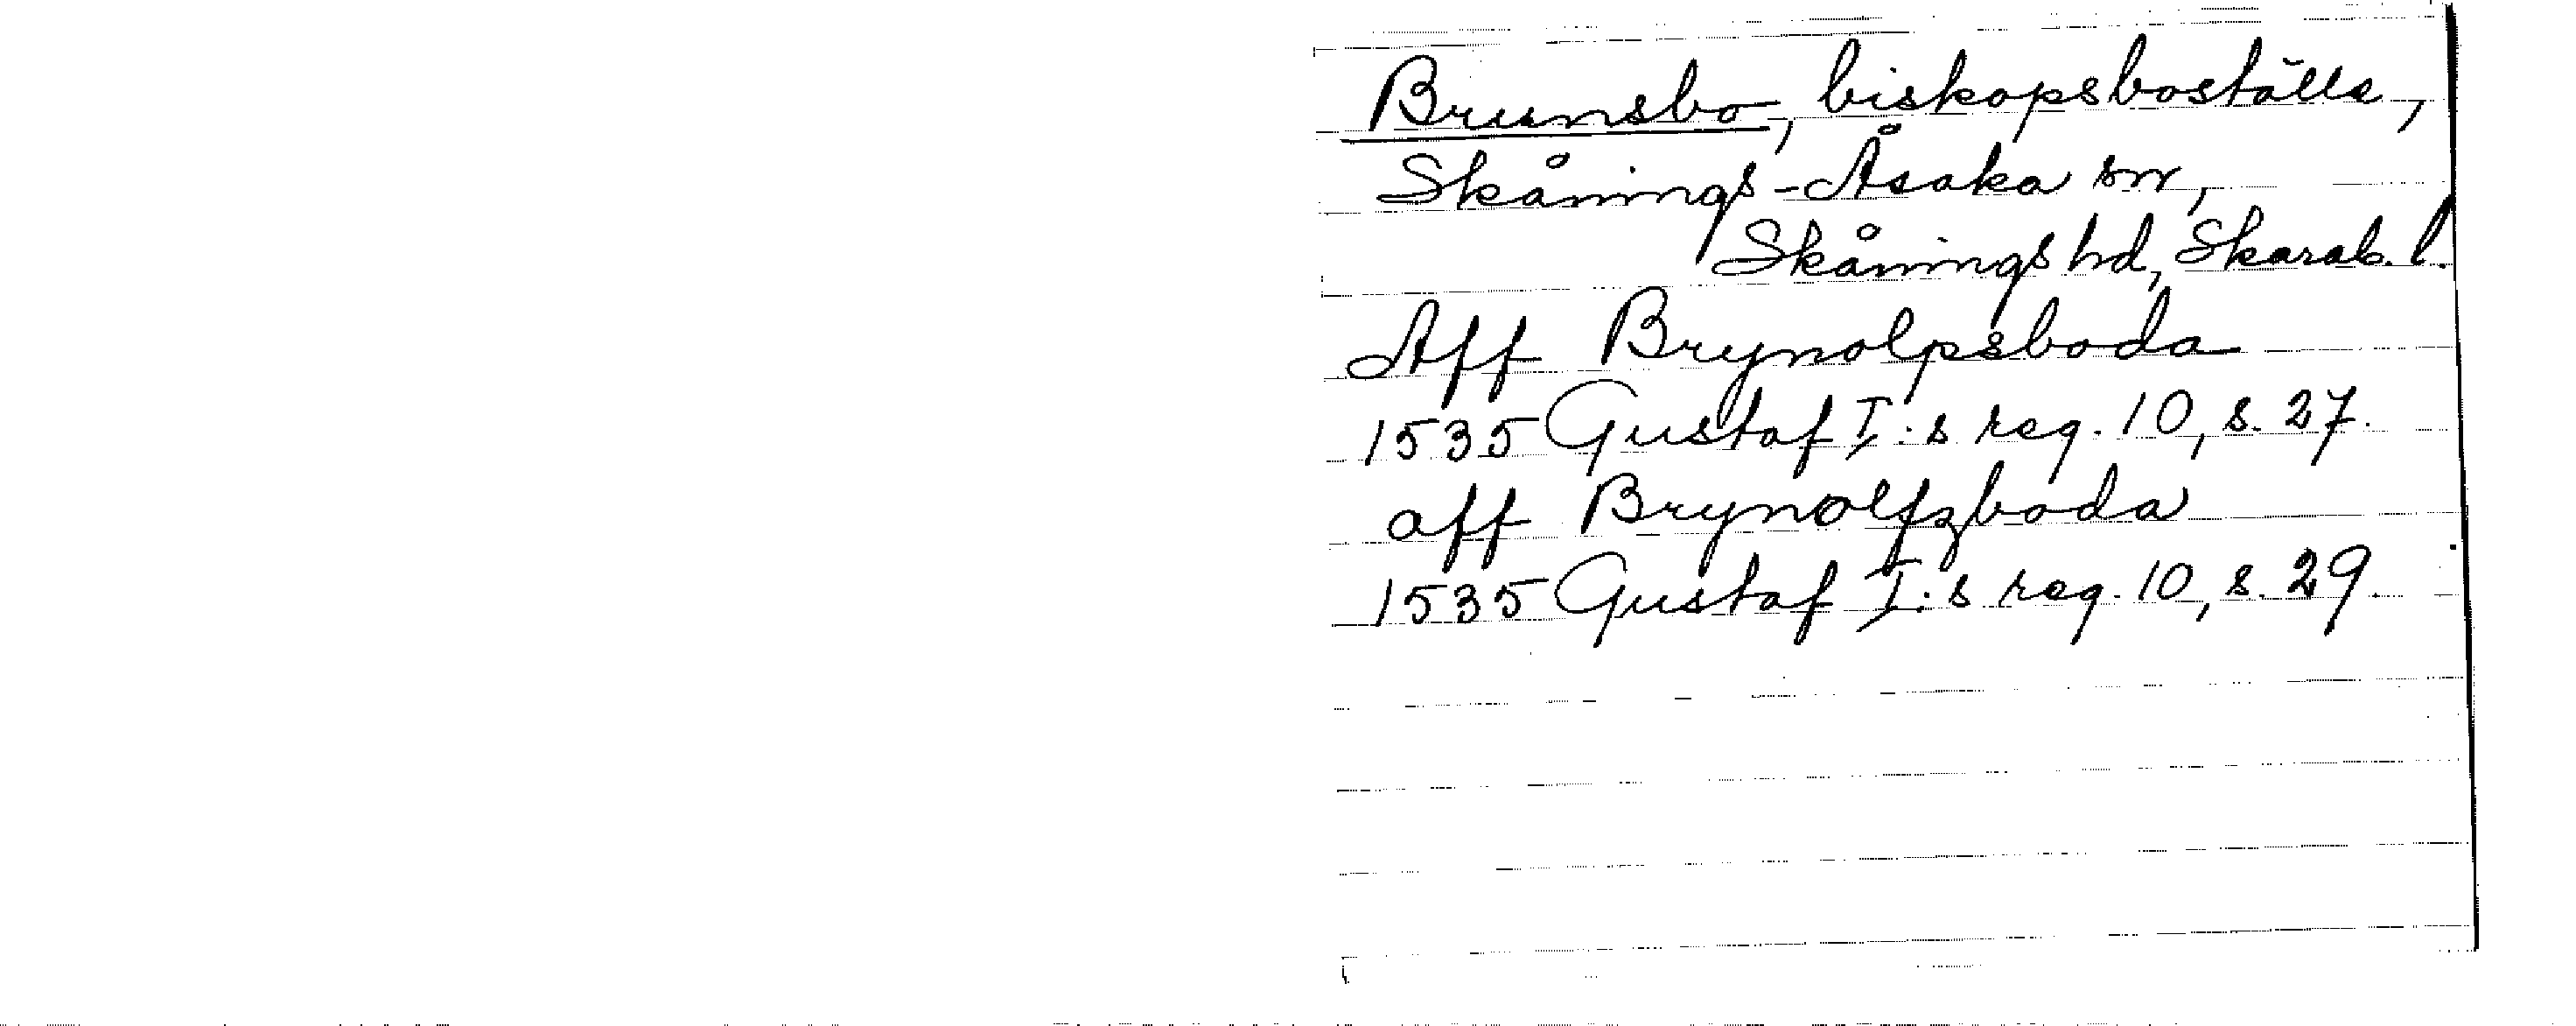 Brunsbo, biskopsboställe,
Skånings-Åsaka sn,
Skånings hd, Skarab. l.
Aff Brynolpsboda
1535 Gustaf I:s reg. 10, s. 27.
aff Brynolfzboda
1535 Gustaf I:s reg. 10, s. 29.